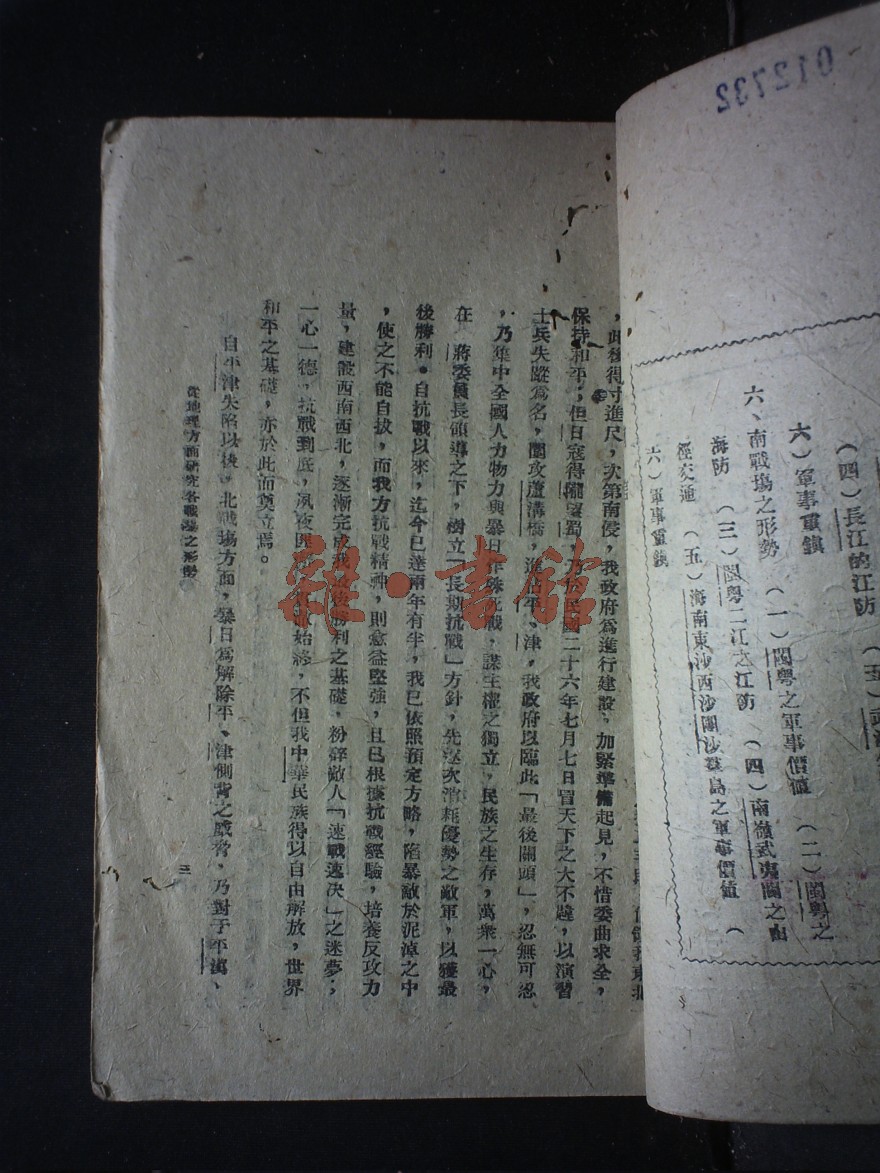 012732
（四）長江的江防　（五）
六）軍事重鎮
六、南戰塲之形勢　（一）閩粵之軍事價値　（二）閩粵之
海防　（三）閩粵二江之江防　（四）南嶺武夷間之山
徑交通　（五）海南東沙西沙團沙羣島之軍事價値　（
六）軍事重鎮
，此後得寸進尺，次第南侵，我政府爲進行建設，加緊準備起見，不惜委曲求全，
保持和平；但日寇得隴望蜀，乃於民國二十六年七月七日冒天下之大不韙，以演習
士兵失蹤爲名，圍攻蘆溝橋，進佔平、津，我政府以臨此「最後關頭」，忍無可忍
，乃集中全國人力物力與暴日作殊死戰，謀主權之獨立，民族之生存，萬衆一心，
在　蔣委員長領導之下，樹立「長期抗戰」方針，先逐次消耗優勢之敵軍，以獲最
後勝利。自抗戰以來，迄今已達兩年有半，我已依照預定方略，陷暴敵於泥淖之中
，使之不能自拔，而我方抗戰精神，則愈益堅強，且已根據抗戰經驗，培養反攻力
量，建設西南西北，逐漸完成我最後勝利之基礎，粉碎敵人「速戰速决」之迷夢；
一心一德，抗戰到底，夙夜匪懈，貫徹始終，不但我中華民族得以自由解放，世界
和平之基礎，亦於此而奠立焉。
自平津失陷以後，北戰塲方面，暴日爲解除平、津側背之威脅，乃對于平漢、
從地理方面硏究各戰塲之形勢
三
雜·書館